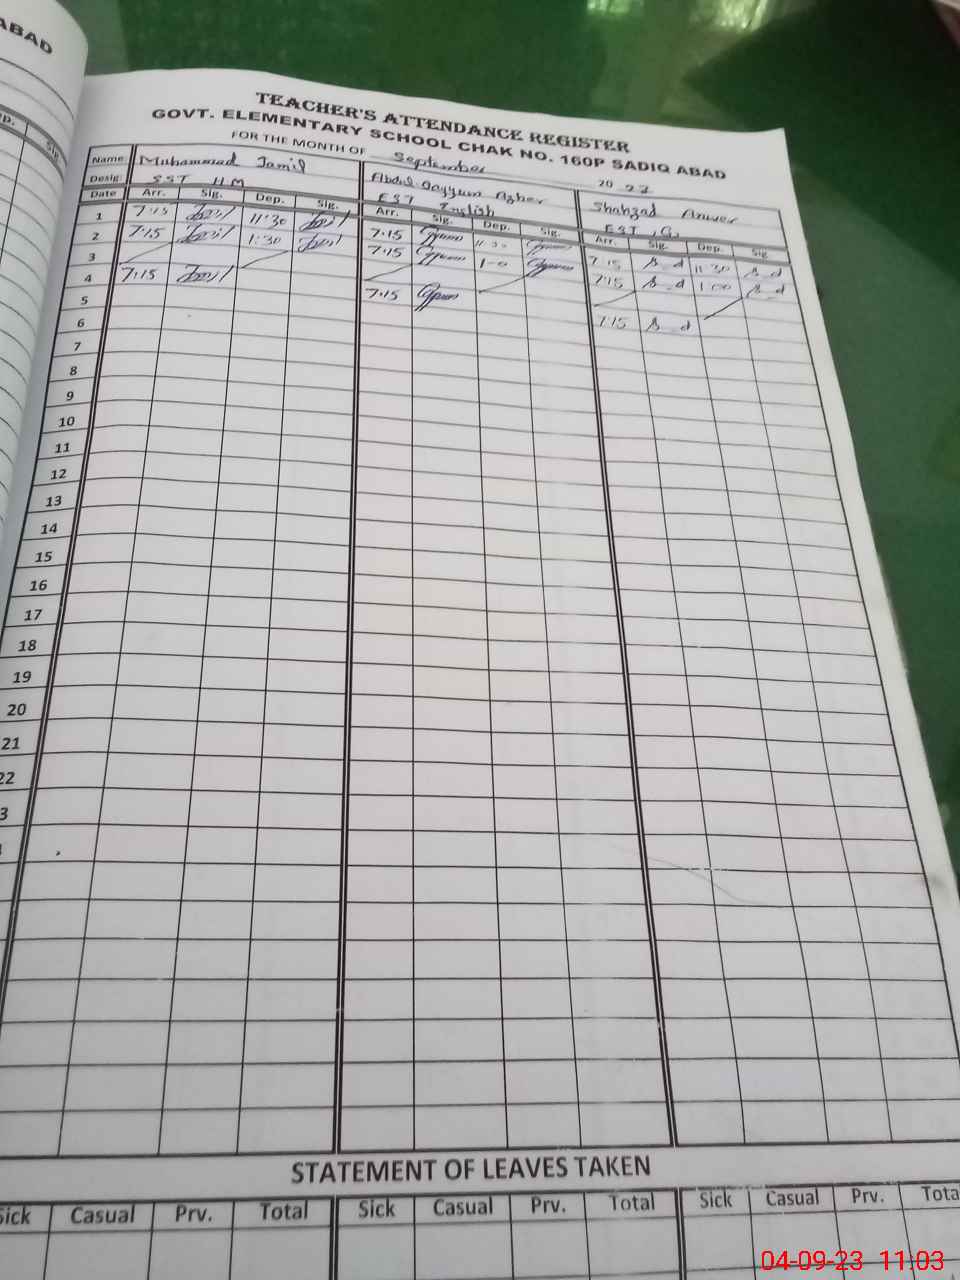 ABAD
TEACHER'S ATTENDANCE REGISTER
GOVT. ELEMENTARY SCHOOL CHAK NO. 160P SADIQ ABAD
FOR THE MONTH OF September 20
Name Muhammad Jamil Abdul Qayyum Azher Shahzad Anwer
Desig: SST HM EST English EST
Date Arr. Sig. Dep. Sig. Arr. Sig. Dep. Sig. Arr. Sig. Dep. Sig
1 7:15 11:30 7:15 11:30 7:15 11:30
2 7:15 1:30 7:15 1-0 7:15 1:00
3
4 7:15 7:15 7:15
5
6
7
8
9
10
11
12
13
14
15
16
17
18
19
20
21
22
3
STATEMENT OF LEAVES TAKEN
Sick Casual Prv. Total Sick Casual Prv. Total Sick Casual Prv. Tota
04-09-23 11:03